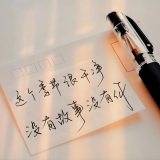 这个季节很干净
没有故事没有你